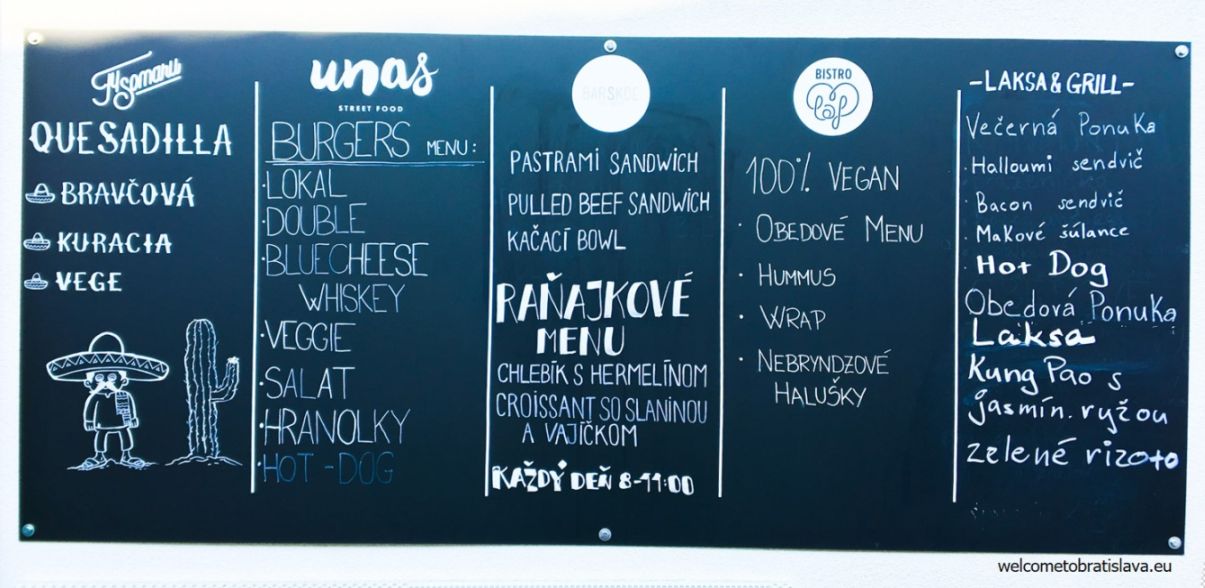 QUESADILLA
BRAVČOVÁ
KURACIA
VEGE
unas
STREET FOOD
BURGERS MENU:
·LOKAL
·DOUBLE
·BLUECHEESE
WHISKEY
·VEGGIE
·SALAT
·HRANOLKY
·HOT-DOG
BARSKDE
PASTRAMI SANDWICH
PULLED BEEF SANDWICH
KAČACÍ BOWL
RAŇAJKOVÉ
MENU
CHLEBÍK S HERMELÍNOM
CROISSANT SO SLANINOU
A VAJÍČKOM
KAŽDÝ DEŇ 8-11:00
BISTRO
100% VEGAN
· OBEDOVÉ MENU
· HUMMUS
· WRAP
· NEBRYNDZOVÉ
HALUŠKY
-LAKSA & GRILL-
Večerná Ponuka
·Halloumi sendvič
·Bacon sendvič
·Makové šúlance
·Hot Dog
Obedová Ponuka
Laksa
Kung Pao s
jasmín. ryžou
zelené rizoto
welcometobratislava.eu